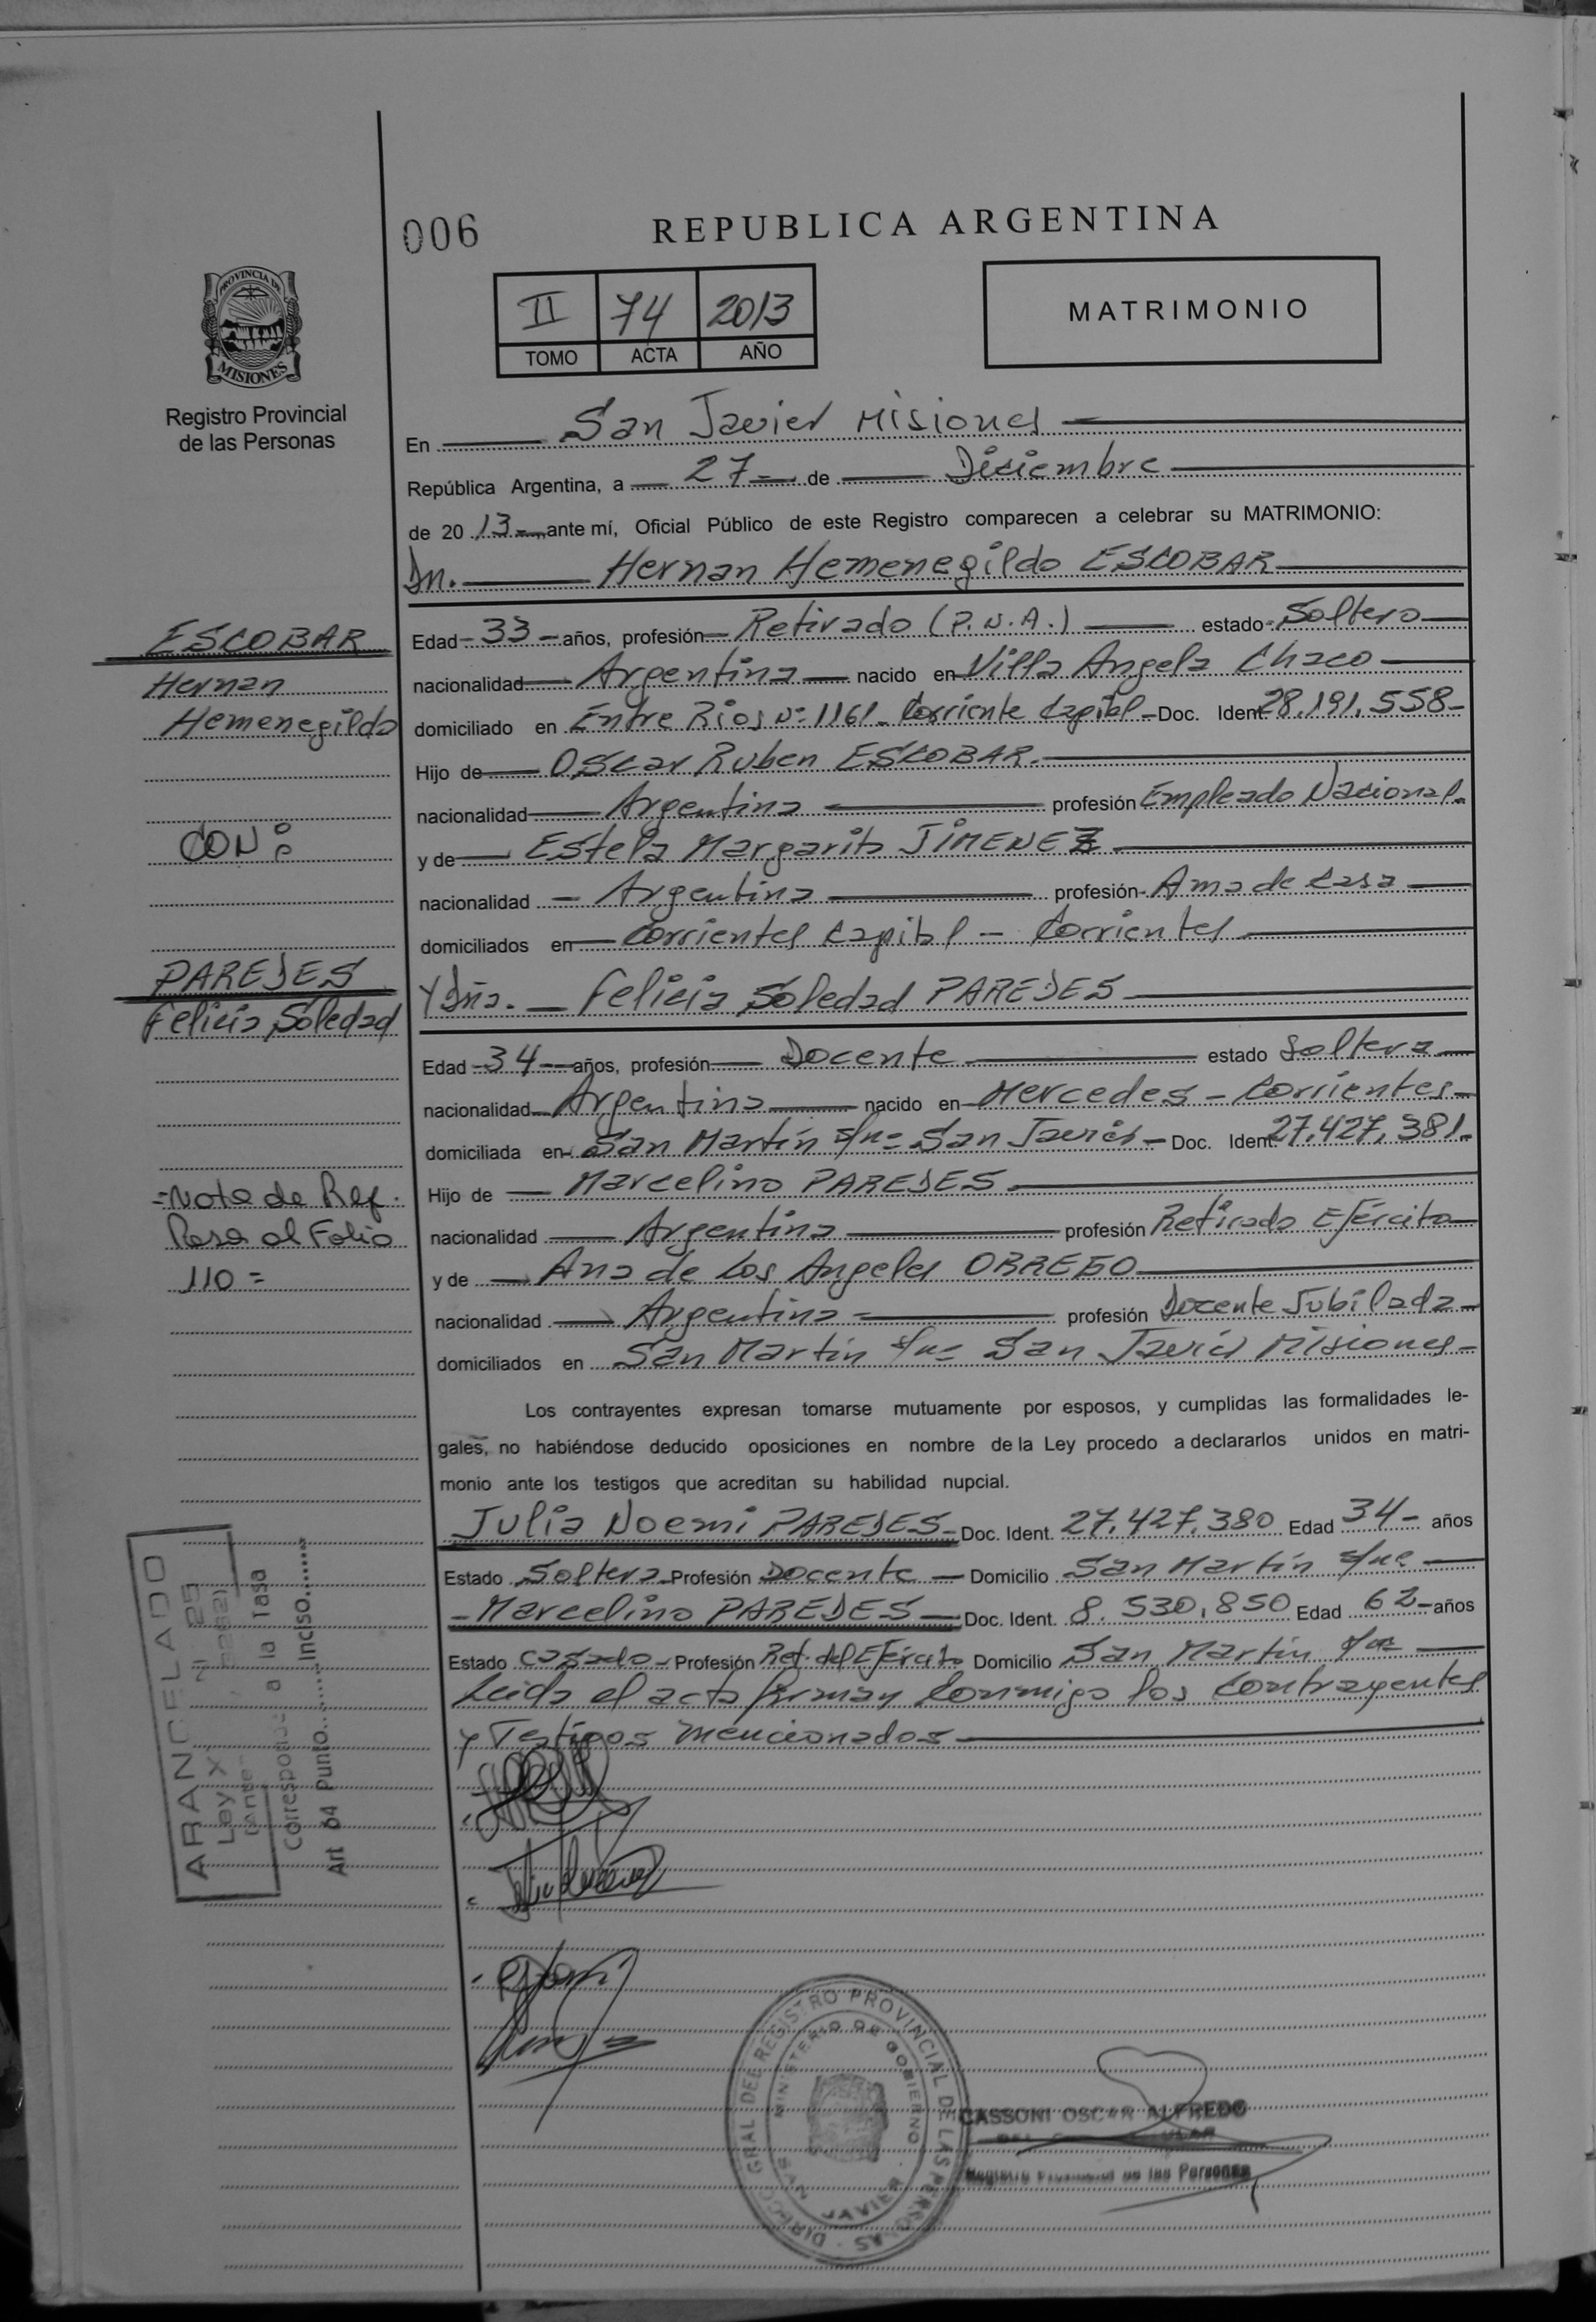 006
REPUBLICA ARGENTINA
PROVINCIA DE
MISIONES
Registro Provincial
de las Personas
II 74 2013
TOMO ACTA AÑO
MATRIMONIO
En San Javier Misiones
República Argentina, a 27 de Diciembre
de 20 13 ante mí, Oficial Público de este Registro comparecen a celebrar su MATRIMONIO:
Dn. Hernan Hemenegildo ESCOBAR
Edad 33 años, profesión Retirado (P.N.A.) estado Soltero
nacionalidad Argentina nacido en Villa Angela Chaco
domiciliado en Entre Rios Nº 1161 - Corriente Capital - Doc. Ident. 28.191.558-
Hijo de Oscar Ruben ESCOBAR.
nacionalidad Argentina profesión Empleado Nacional.
y de Estela Margarita JIMENEZ
nacionalidad Argentina profesión Ama de Casa
domiciliados en Corrientes Capital - Corrientes
Y Dña. Felicia Soledad PAREDES
Edad 34 años, profesión Docente estado Soltera
nacionalidad Argentina nacido en Mercedes - Corrientes -
domiciliada en San Martín s/nº San Javier - Doc. Ident. 27.427.381-
Hijo de Marcelino PAREDES
nacionalidad Argentina profesión Retirado Ejército
y de Ana de Los Angeles OBREGO
nacionalidad Argentina profesión Docente Jubilada
domiciliados en San Martín s/nº San Javier Misiones -
Los contrayentes expresan tomarse mutuamente por esposos, y cumplidas las formalidades le-
gales, no habiéndose deducido oposiciones en nombre de la Ley procedo a declararlos unidos en matri-
monio ante los testigos que acreditan su habilidad nupcial.
Julia Noemi PAREDES - Doc. Ident. 27.427.380 Edad 34 - años
Estado Soltera Profesión Docente Domicilio San Martín s/nº
Marcelino PAREDES Doc. Ident. 8.530.850 Edad 62 - años
Estado Casado - Profesión Ret. del Ejército Domicilio San Martín s/nº
Leida el acta firman Conmigo los Contrayentes
y Testigos mencionados
ESCOBAR
Hernan
Hemenegildo
CON:
PAREDES
Felicia Soledad
=Nota de Ref.
Pasa al Folio
110=
ARANCELADO
Ley X
Corresponde a la Tasa
Art 64 Punto........Inciso........
DIRECC. GRAL DEL REGISTRO PROVINCIAL DE LAS PERSONAS
MINISTERIO DE GOBIERNO
SAN JAVIER
CASSONI OSCAR ALFREDO
Registro Provincial de las Personas